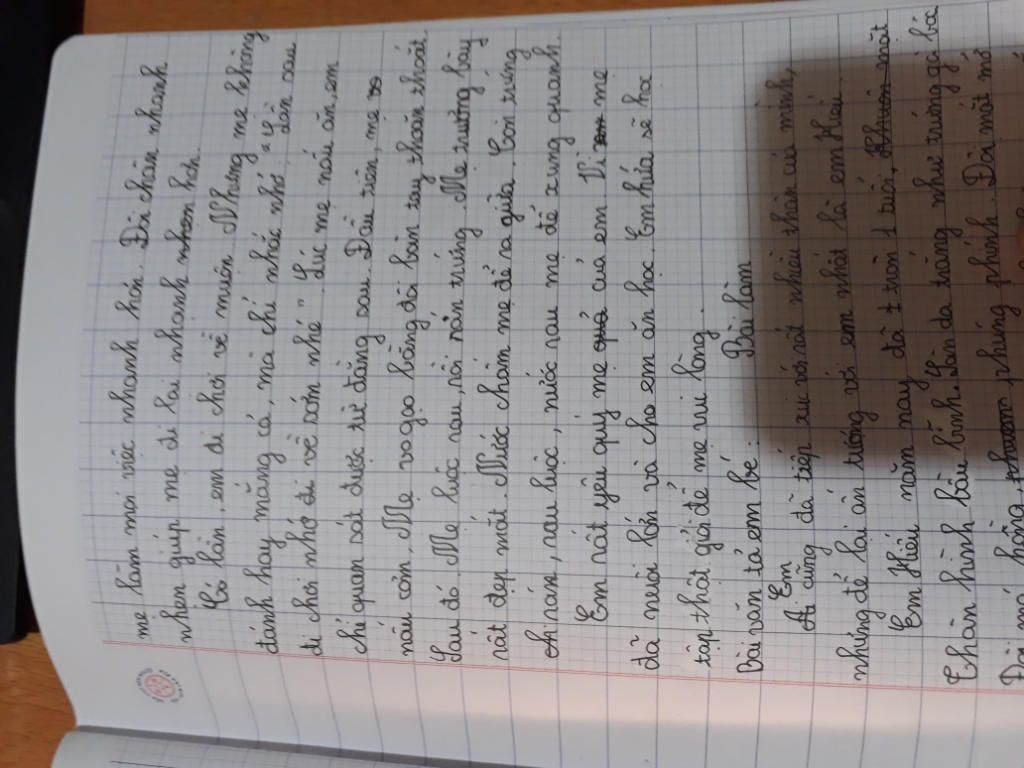 mẹ làm mọi việc nhanh hơn. Đôi chân nhanh
nhẹn giúp mẹ đi lại nhanh nhẹn hơn.
Có lần, em đi chơi về muộn. Nhưng mẹ không
đánh hay mắng cả, mà chỉ nhắc nhở: "Lần sau
đi chơi nhớ đi về sớm nhé". Lúc mẹ nấu ăn, em
chỉ quan sát được từ đằng sau. Đầu tiên, mẹ
nấu cơm. Mẹ vo gạo bằng đôi bàn tay thoăn thoắt.
Sau đó. Mẹ luộc rau, rồi rán trứng. Mẹ trưởng bày
rất đẹp mắt. Nước chấm mẹ để ra giữa. Còn trứng
rán, rau luộc, nước rau mẹ để xung quanh.
Em rất yêu quý mẹ của em. Vì mẹ
đã nuôi lớn và cho em ăn học. Em hứa sẽ học
tập thật giỏi để mẹ vui lòng.
Bài văn tả em bé: Bài làm
Em
Ai cũng đã tiếp xúc với rất nhiều thân của mình,
nhưng để lại ấn tượng với em nhất là em Hiếu.
Em Hiếu năm nay đã tròn 1 tuổi,
Thân hình bầu bĩnh. Làn da trắng như trứng gà bóc
Đôi má hồng, phúng phính. Đôi mắt mở